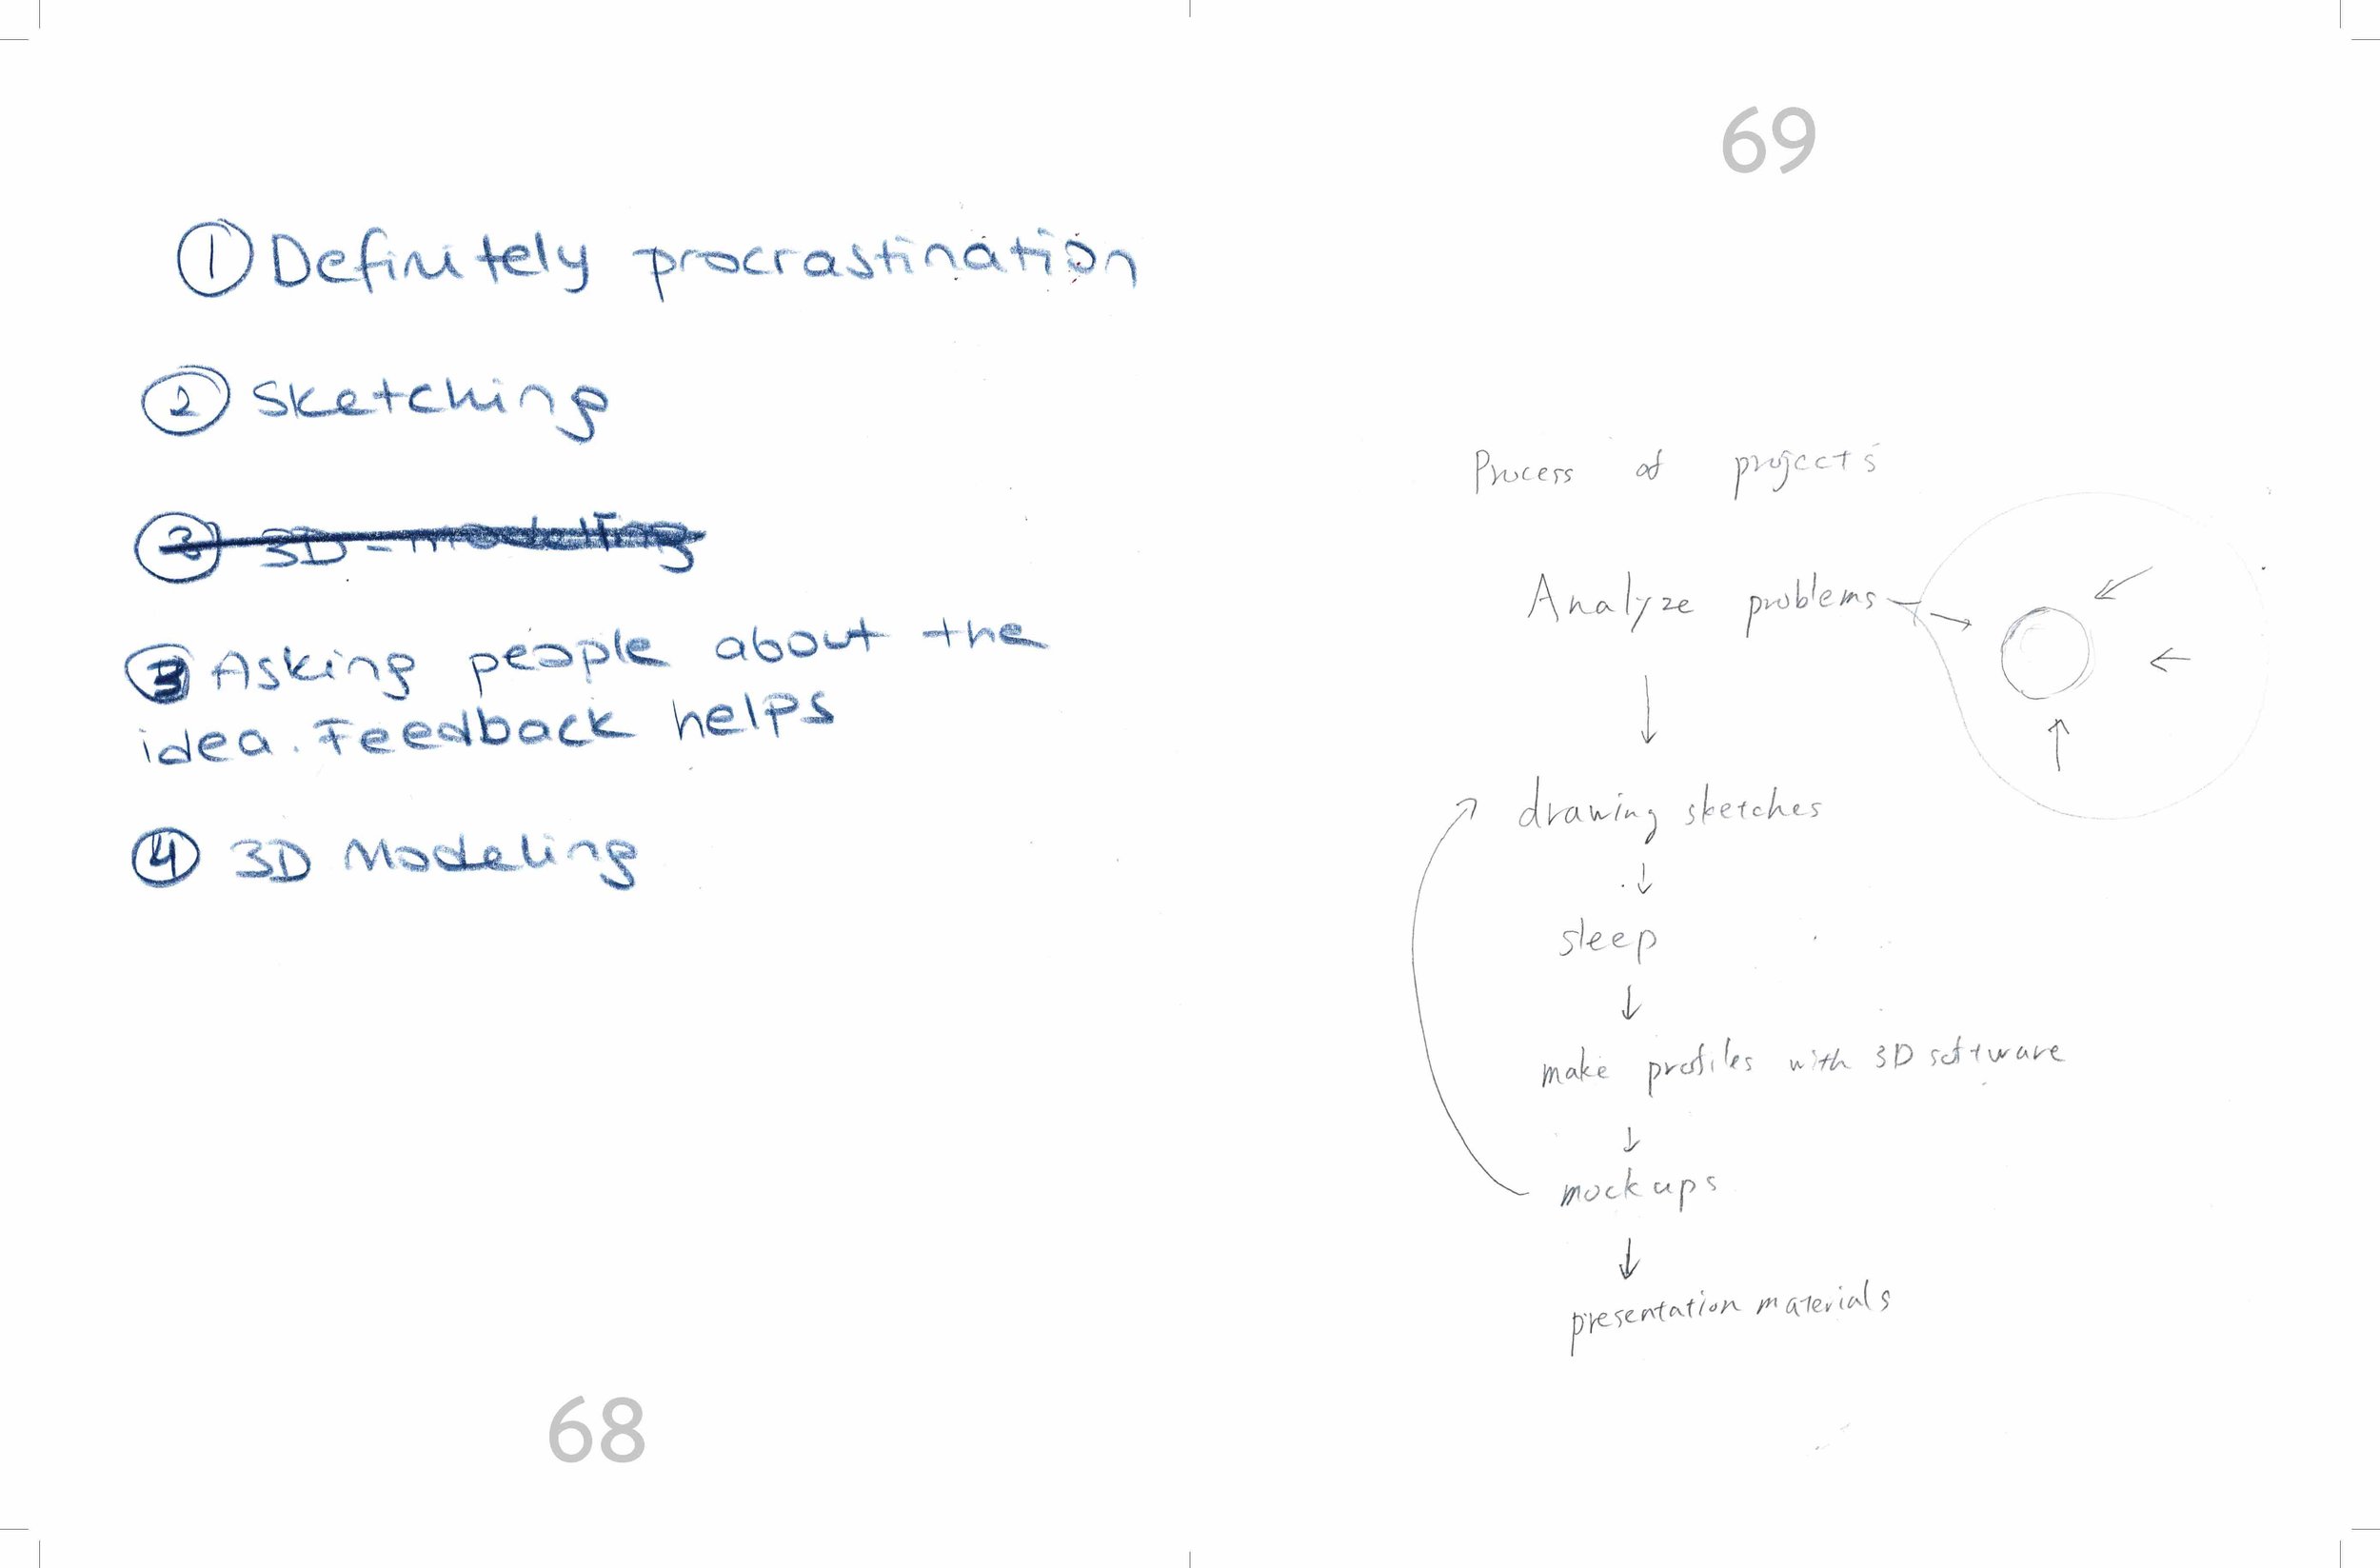 ① Definitely procrastination
② Sketching
③ 3D-modelling
③ Asking people about the
idea. Feedback helps
④ 3D Modeling
68
69
Process of projects
Analyze problems
drawing sketches
sleep
make profiles with 3D software
mockups
presentation materials